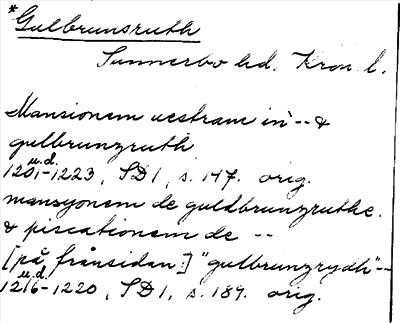 *Gulbrunsruth
Sunnerbo hd. Kron. l.
Mansionem uestram in -- &
gulbrunzruth
u.d.
1201-1223, SD1, s. 147. orig.
mansyonem de guldbrunzruthe.
& piscationem de --
[på frånsidan:] "gulbrunzrydh" --
u.d.
1216-1220, SD1, s. 189. orig.